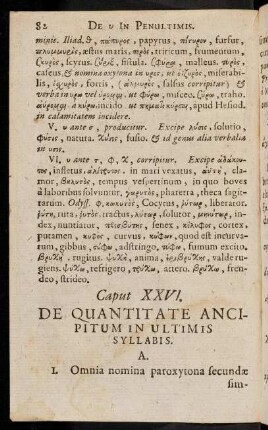 82 DE υ IN PENULTIMIS.
minis. Iliad. φ, πάπυρος, papyrus, πίτυρον, furfur,
πλημμυρὶς, æstus maris, πυρὸς, tritici, frumentum,
fistula. malleus.
caseus, & nomina oxytona in υρος, ut οἰζυρὸς, miserabi-
lis, ἰσχυρὸς, fortis, ( ἁλμυρὸς, falsus corripitur) &
verba in υρω vel ut φύρω, misceo, σύρω, traho.
à κύρω, incido ut apud Hesiod.
in calamitatem incidere.
V. υ ante σ, producitur. Excipe λύσις, solutio,
φύσις, natura. χύσις, fusio. & id genus alia verbalia
in υσις.
VI. υ ante τ, φ, χ, corripitur. Excipe
infletus, in mari vexatus, ἀϋτὴ, cla-
mor, βουλυτὸς, tempus vespertinum, in quo boves
à laboribus solvuntur, γωρυτὸς, pharetra, theca sagit-
tarum. Odyss. φ. κωκυτὸς, Cocytus, ῥύτωρ, liberator.
ῥυτὴ, ruta, ῥυτὸς, tractus, λύτωρ, solutor, μηνύτωρ, in-
dex, nuntiator, πρεσβύτης, senex, κέλυφος, cortex,
putamen, κυφὸς, curvus, κύφων, quod est incurva-
rum, gibbus, adstringo, τύφω, fumum excito,
βρυχὴ, rugitus. ψυχὴ, anima, valde ru-
giens. ψύχω, refrigero, τρύχω, attero. βρύχω, fren-
deo, strideo.
Caput XXVI.
DE QUANTITATE ANCI-
PITUM IN ULTIMIS
SYLLABIS.
A.
I. Omnia nomina paroxytona secundæ
sim-